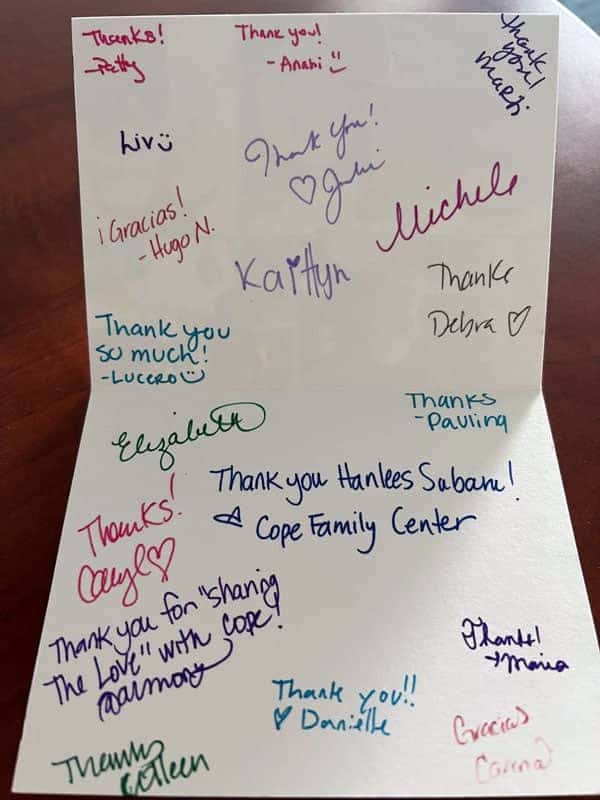 Thanks!
-Patty
Thank you!
-Anahi
Thank
you!
Liv
Thank You!
♡ Julie
¡Gracias!
-Hugo N.
Michele
Kaitlyn
Thanks
Debra ♡
Thank you
so much!
-Lucero
Elizabeth
Thanks
-Paulina
Thank you Hanlees Subaru!
Cope Family Center
Thanks!
Caryl ♡
Thank you for "sharing
the Love" with Cope!
Thanks!
Maria
Thank you!!
♡ Danielle
Thanks
Colleen
Gracias
Carina